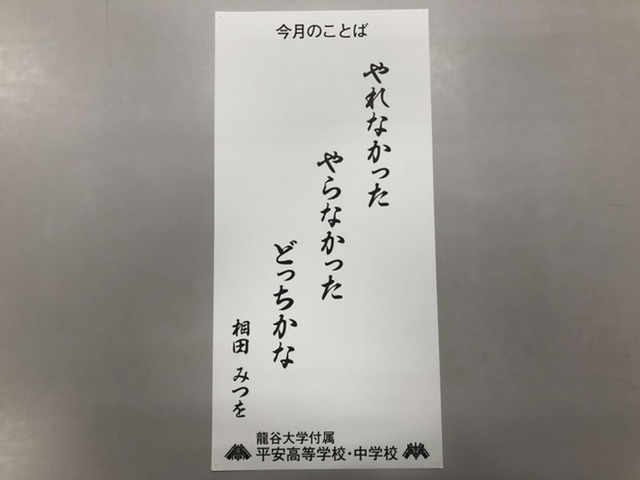 今月のことば
やれなかった
やらなかった
どっちかな
相田 みつを
龍谷大学付属
平安高等学校・中学校